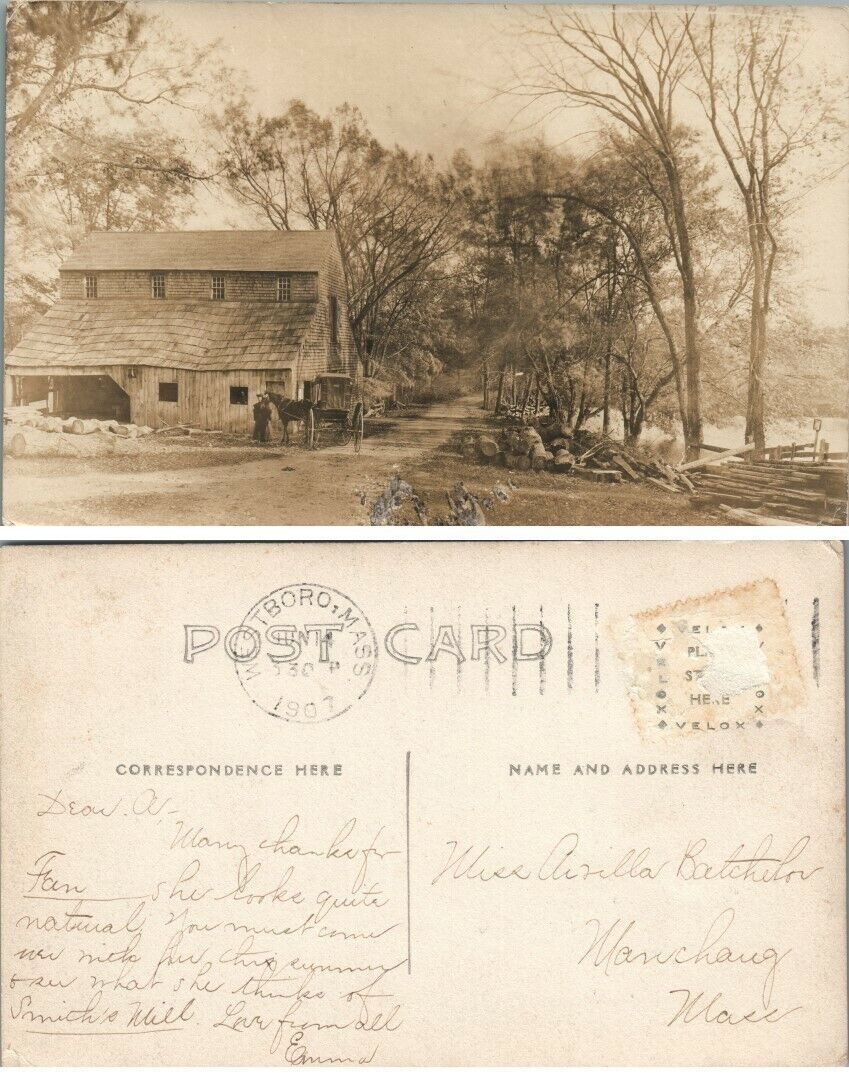 POST CARD
WESTBORO, MASS.
JUN
30 P
1907
VELOX
VELOX
PL
ST
HERE
VELOX
VELOX
CORRESPONDENCE HERE
NAME AND ADDRESS HERE
Dear A-
Many thanks for
Fan she looks quite
natural, You must come
over with her this summer
& see what she thinks of
Smith's Mill. Love from all
Emma
Miss Airilla Batchelor
Manchaug
Mass